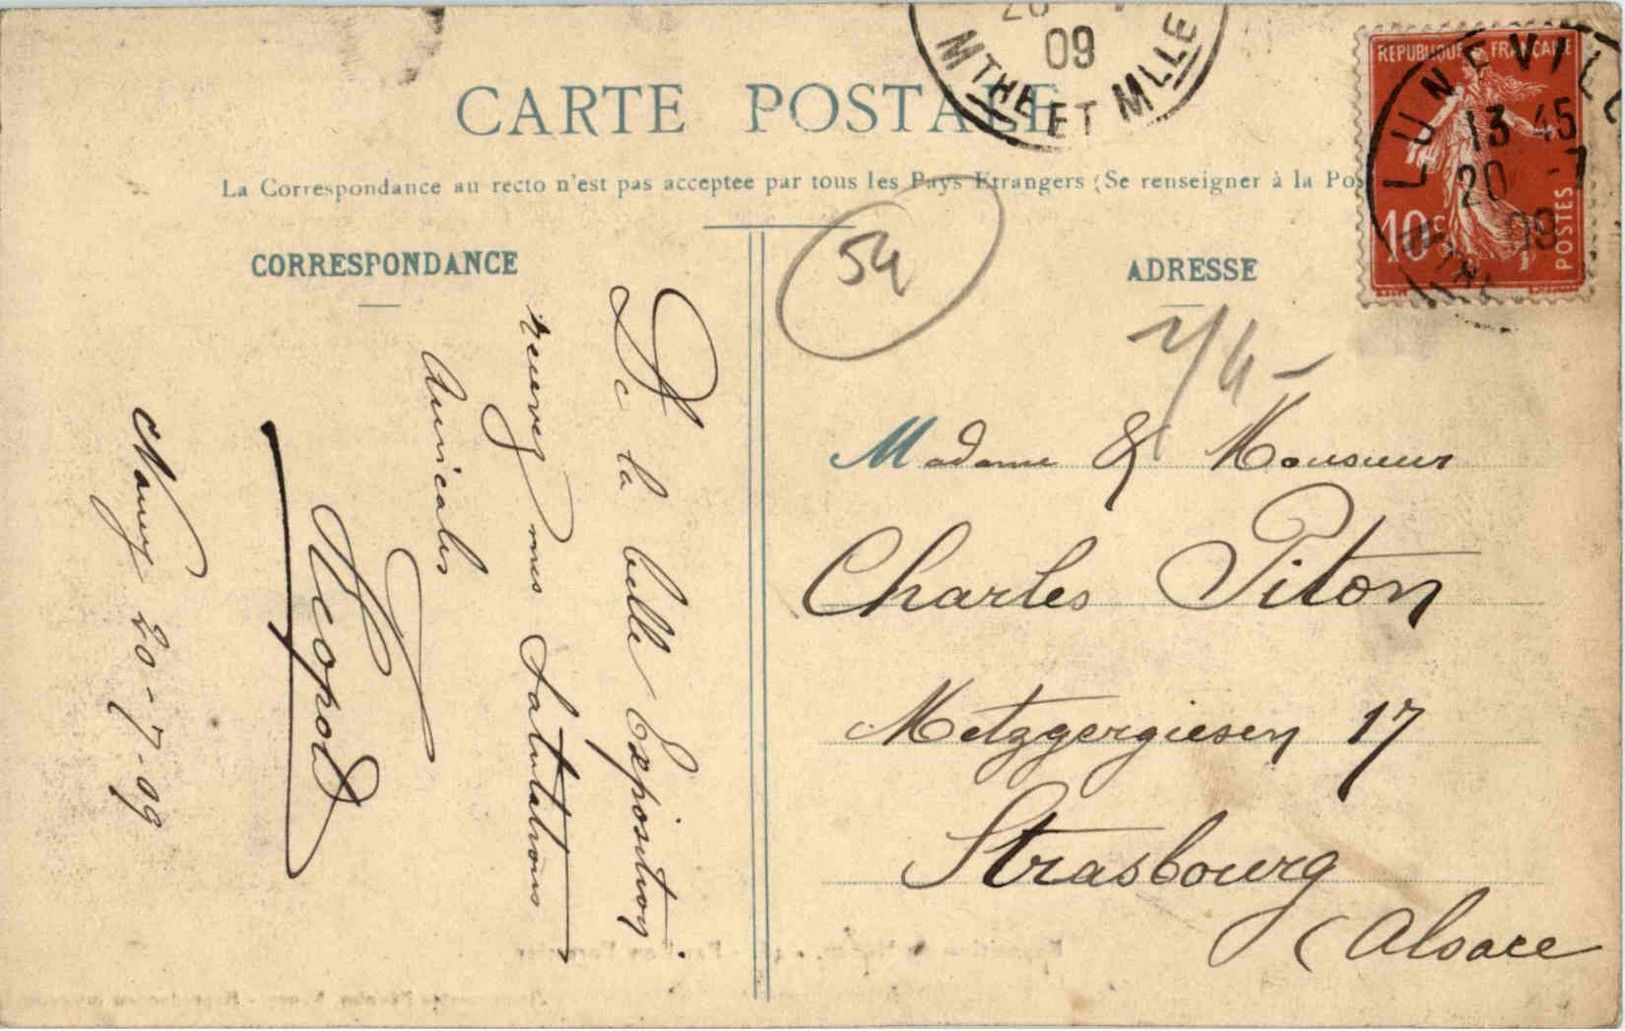 CARTE POSTALE
La Correspondance au recto n'est pas acceptee par tous les Pays Etrangers (Se renseigner à la Pos
CORRESPONDANCE
ADRESSE
De la belle Exposition
recevez mes Salutations
Amicales
Léopold
Nancy 20-7-09
Madame & Monsieur
Charles Piton
Metzgergiesen 17
Strasbourg
(Alsace
54
09
MTHE ET MLLE
REPUBLIQUE FRANÇAISE
10c
POSTES
LUNEVILLE
13 45
20 -7
09